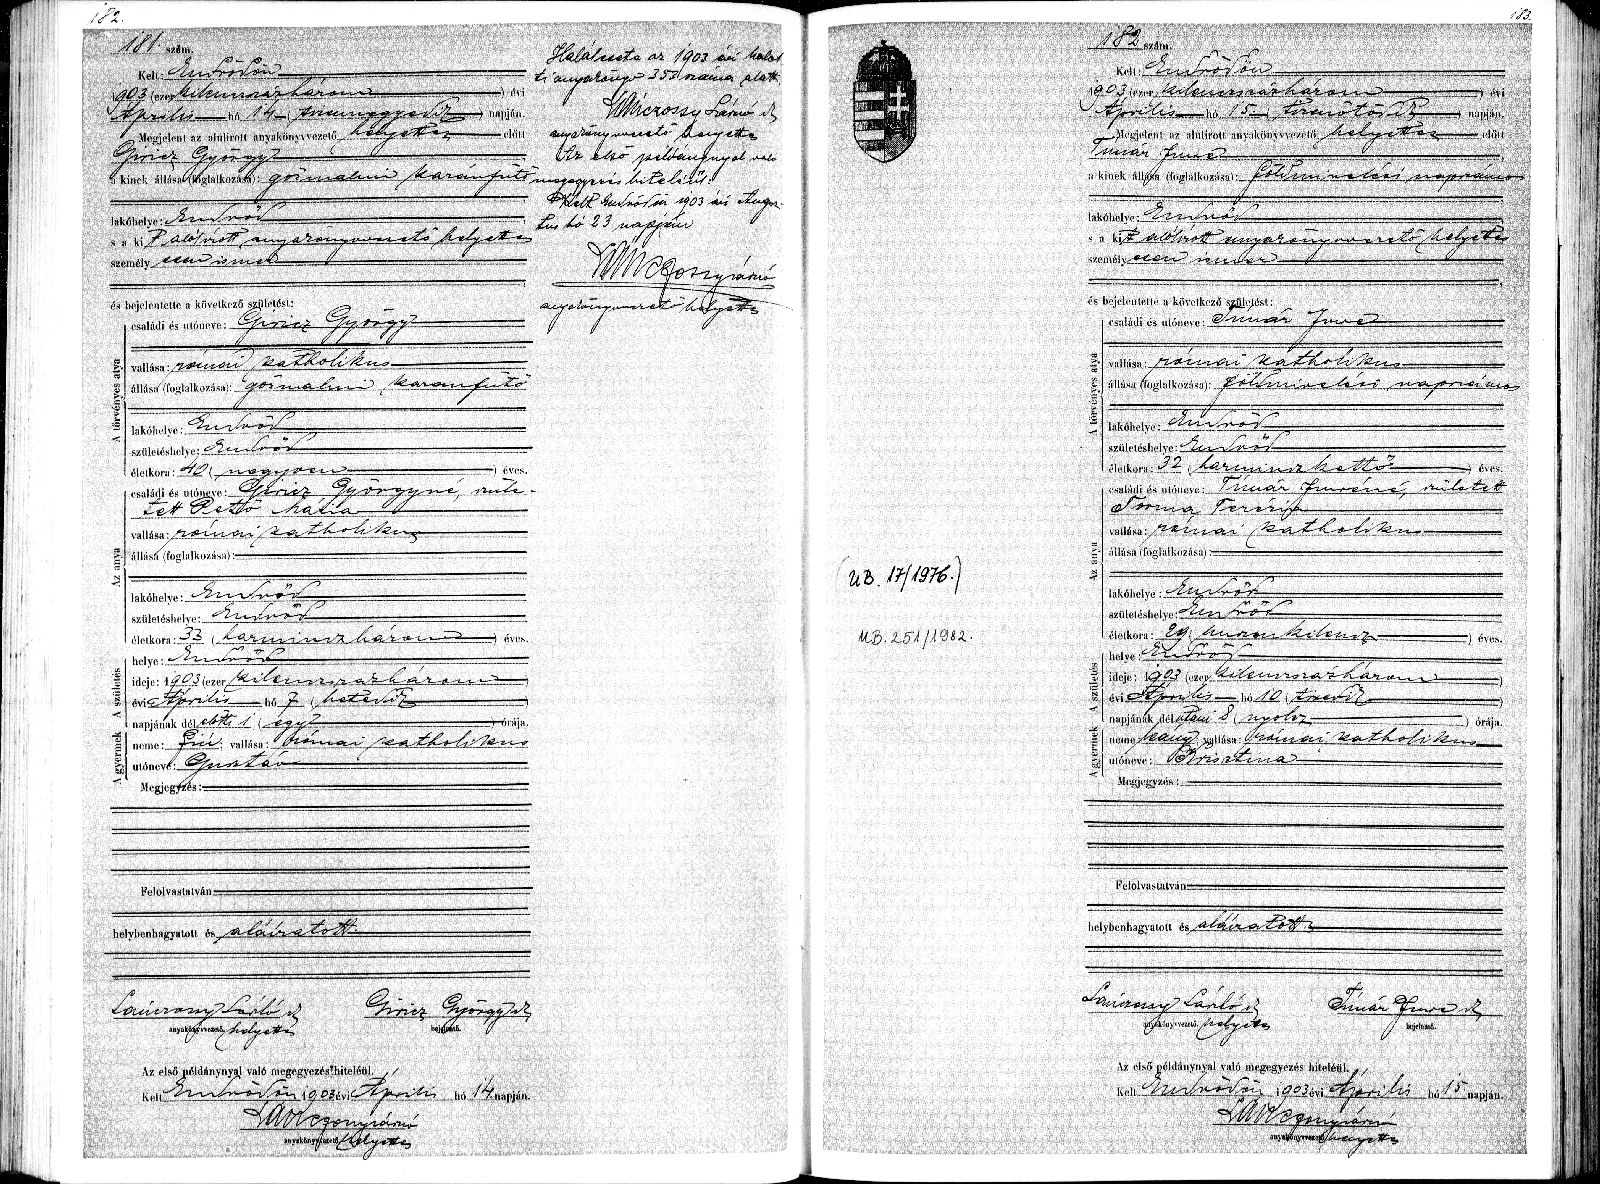 182.
181. szám.
Kelt: Endrődön
1903 (ezer kilencszázhárom) évi
Április hó 14 (tizennegyedik) napján.
Megjelent az alulirott anyakönyvvezető helyettes előtt
Giricz György
a kinek állása (foglalkozása): gőzmalmi kazánfűtő
lakóhelye: Endrőd
s a kit alólirott anyakönyvvezető helyettes
személyesen ismer
és bejelentette a következő születést:
A törvényes atya
családi és utóneve: Giricz György
vallása: római katholikus
állása (foglalkozása): gőzmalmi kazánfűtő
lakóhelye: Endrőd
születéshelye: Endrőd
életkora: 40 (negyven) éves.
Az anya
családi és utóneve: Giricz Györgyné, szüle-
tett Pető Mária
vallása: római katholikus
állása (foglalkozása):
lakóhelye: Endrőd
születéshelye: Endrőd
életkora: 33 (harminczhárom) éves.
A születés
helye: Endrőd
ideje: 1903 (ezer kilencszázhárom)
évi Április hó 7 (hetedik)
napjának dél előtti 1 (egy) órája.
A gyermek
neme: fiú vallása: római katholikus
utóneve: Gusztáv
Megjegyzés:
Felolvastatván
helybenhagyatott és aláiratott
Lánczossy László helyettes
anyakönyvvezető
Giricz György
bejelentő.
Az első példánynyal való megegyezés hiteléül.
Kelt Endrődön 1903 évi Április hó 14 napján.
anyakönyvvezető helyettes
Halálesete az 1903 évi halot-
ti anyakönyv 353 száma alatt.
anyakönyvvezető helyettes
Az első példánynyal való
megegyezés hiteléül.
Kelt Endrődön 1903 évi Augusz-
tus hó 23 napján
anyakönyvvezető helyettes
183.
(UB. 17/1976.)
UB. 251/1982.
182 szám.
Kelt: Endrődön
1903 (ezer kilencszázhárom) évi
Április hó 15 (tizenötödik) napján.
Megjelent az alulirott anyakönyvvezető helyettes előtt
Timár Imre
a kinek állása (foglalkozása): földmivelési napszámos
lakóhelye: Endrőd
s a kit alólirott anyakönyvvezető helyettes
személyesen ismer
és bejelentette a következő születést:
A törvényes atya
családi és utóneve: Timár Imre
vallása: római katholikus
állása (foglalkozása): földmivelési napszámos
lakóhelye: Endrőd
születéshelye: Endrőd
életkora: 32 (harminczkettő) éves.
Az anya
családi és utóneve: Timár Imréné, született
Torma Terézia
vallása: római katholikus
állása (foglalkozása):
lakóhelye: Endrőd
születéshelye: Endrőd
életkora: 29 (huszonkilencz) éves.
A születés
helye: Endrőd
ideje: 1903 (ezer kilencszázhárom)
évi Április hó 10 (tizedik)
napjának dél utáni 8 (nyolcz) órája.
A gyermek
neme: leány vallása: római katholikus
utóneve: Krisztina
Megjegyzés:
Felolvastatván
helybenhagyatott és aláiratott
Lánczossy László helyettes
anyakönyvvezető
Timár Imre
bejelentő.
Az első példánynyal való megegyezés hiteléül.
Kelt Endrődön 1903 évi Április hó 15 napján.
anyakönyvvezető helyettes